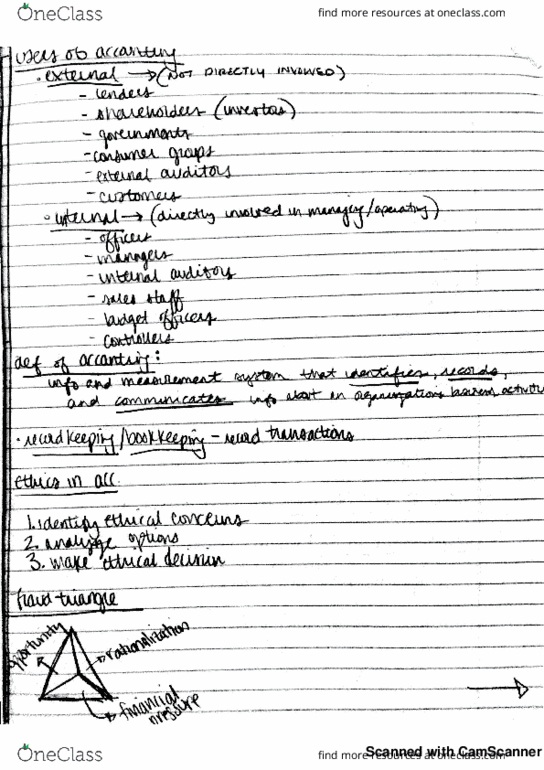 OneClass
find more resources at oneclass.com
users of accounting
• external → (NOT DIRECTLY INVOLVED)
- lenders
- shareholders (investors)
- governments
- consumer groups
- external auditors
- customers
• internal → (directly involved in managing/operating)
- officers
- managers
- internal auditors
- sales staff
- budget officers
- controllers
def of accounting:
info and measurement system that identifies, records,
and communicates info about an organizations business activities
• recordkeeping/bookkeeping - record transactions
ethics in acc.
1. identify ethical concerns
2. analyze options
3. make ethical decision
fraud triangle
opportunity
rationalization
financial
pressure
OneClass
find more resources at oneclass.com
Scanned with CamScanner